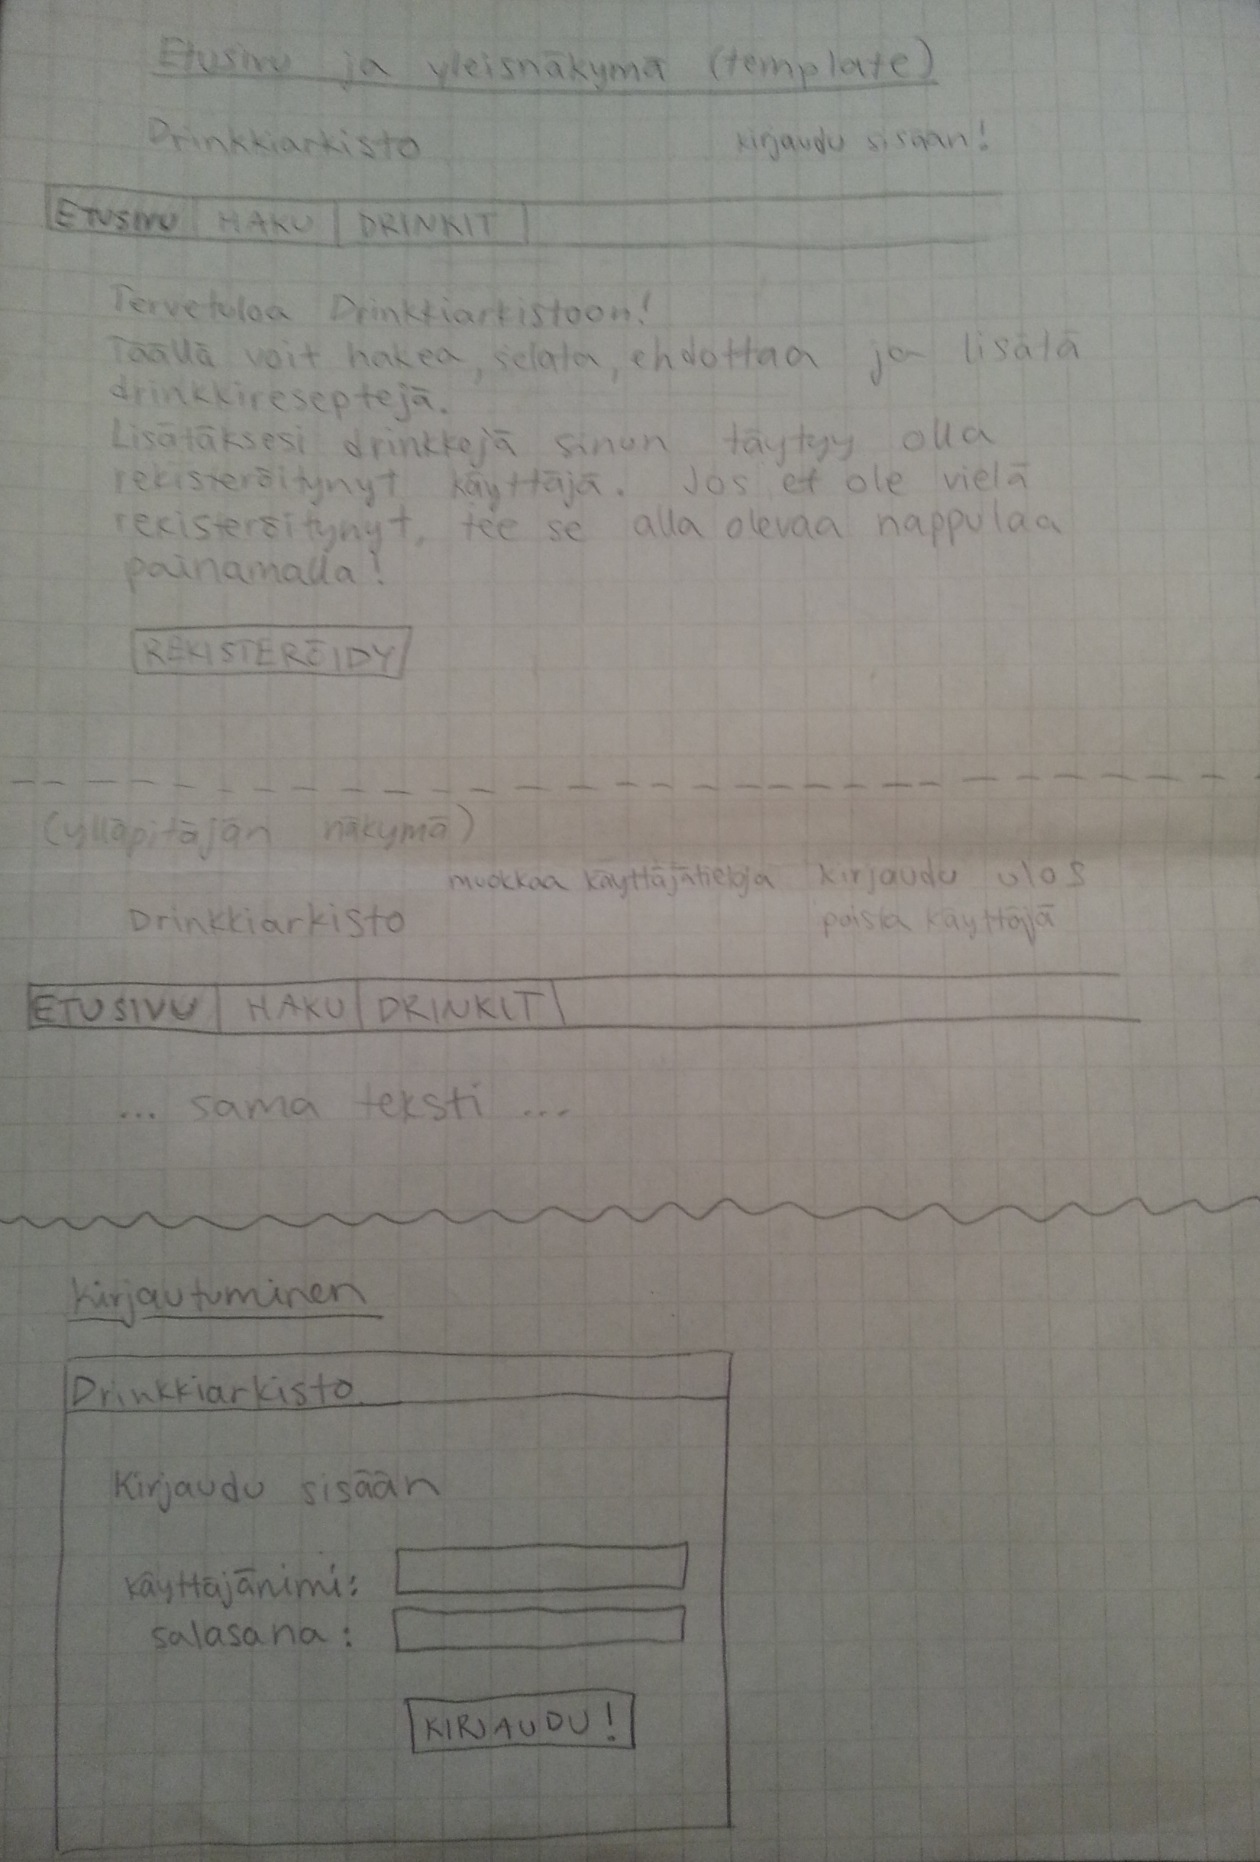 Etusivu ja yleisnäkymä (template)
Drinkkiarkisto kirjaudu sisään!
ETUSIVU HAKU DRINKIT
Tervetuloa Drinkkiarkistoon!
Täällä voit hakea, selata, ehdottaa ja lisätä
drinkkireseptejä.
Lisätäksesi drinkkejä sinun täytyy olla
rekisteröitynyt käyttäjä. Jos et ole vielä
rekisteröitynyt, tee se alla olevaa nappulaa
painamalla!
REKISTERÖIDY
(ylläpitäjän näkymä)
muokkaa käyttäjätietoja kirjaudu ulos
Drinkkiarkisto poista käyttäjä
ETUSIVU HAKU DRINKIT
... sama teksti ...
Kirjautuminen
Drinkkiarkisto
Kirjaudu sisään
käyttäjänimi:
salasana:
KIRJAUDU!